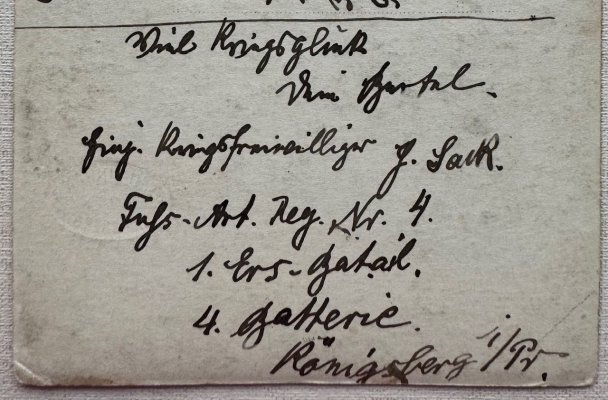 Viel Kriegsglück
Dein Bartel.
Einj. Kriegsfreiwilliger J. Sack.
Fuß-Art. Reg. Nr. 4.
1. Ers-Batail.
4. Batterie.
Königsberg i/Pr.